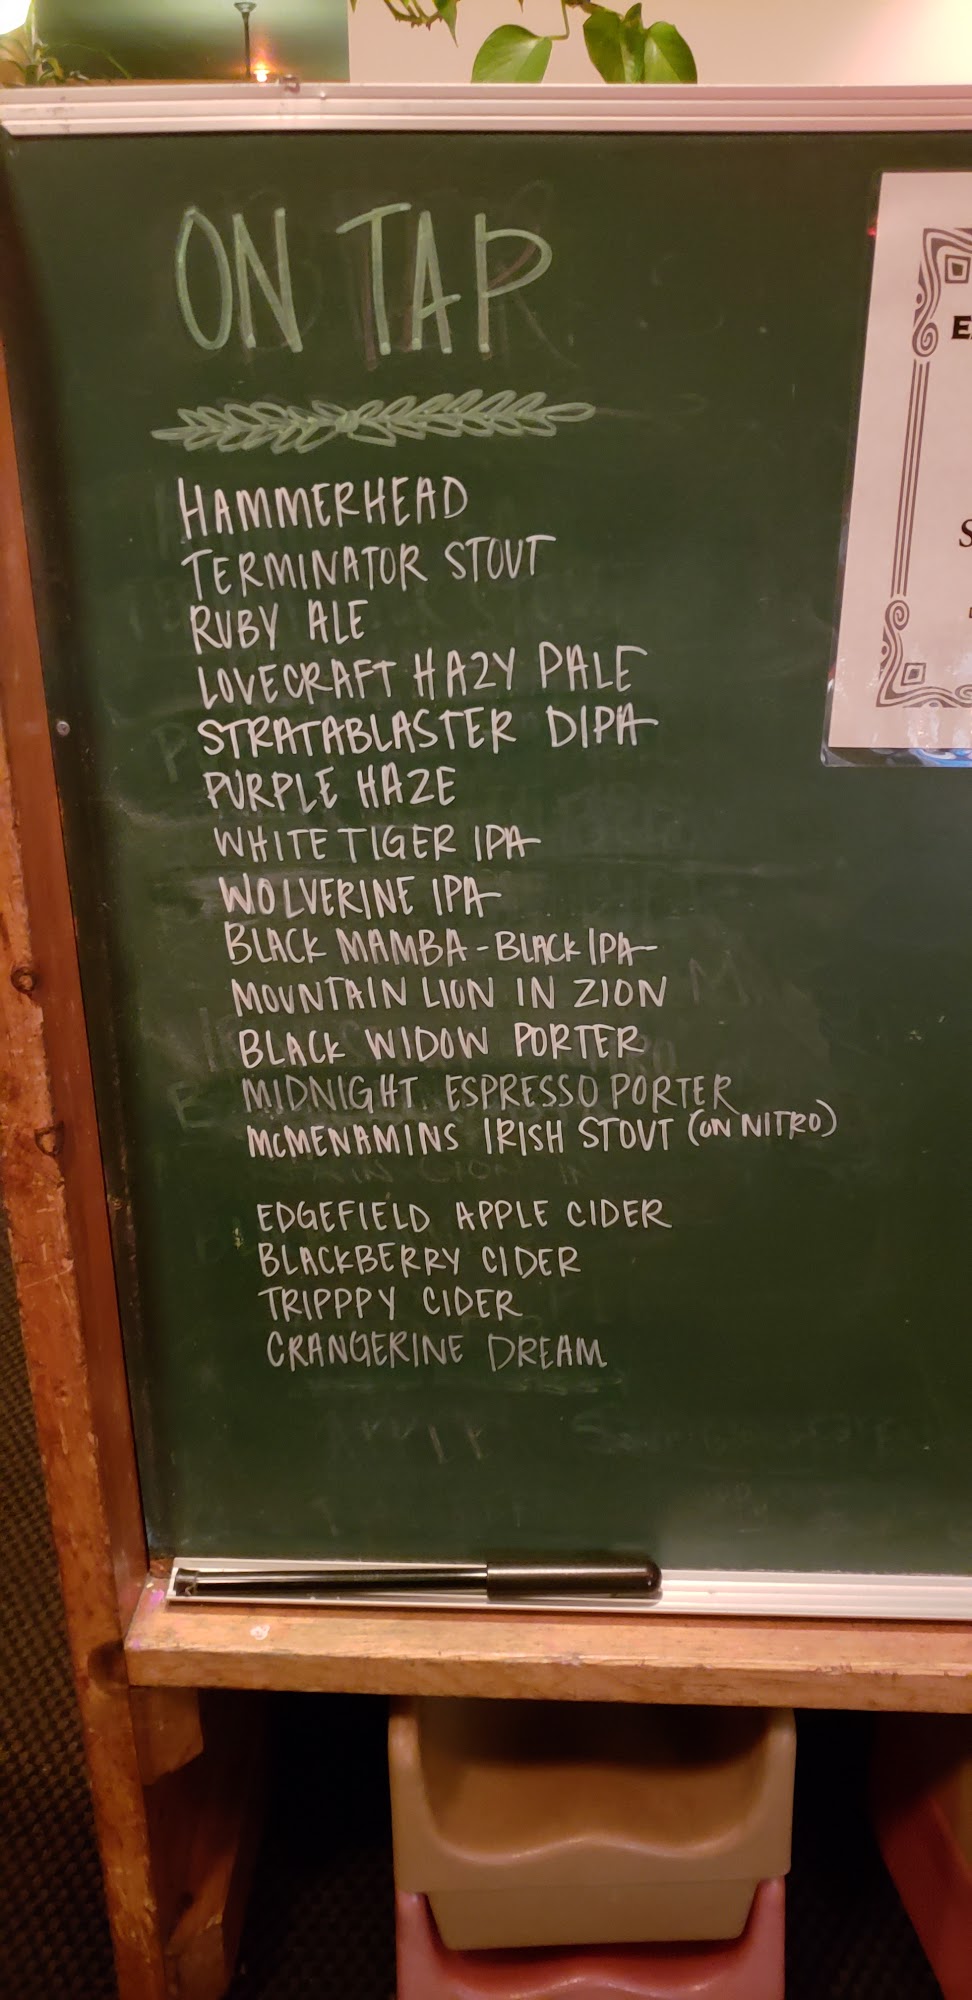 ON TAP
HAMMERHEAD
TERMINATOR STOUT
RUBY ALE
LOVECRAFT HAZY PALE
STRATABLASTER DIPA
PURPLE HAZE
WHITE TIGER IPA
WOLVERINE IPA
BLACK MAMBA - BLACK IPA
MOUNTAIN LION IN ZION
BLACK WIDOW PORTER
MIDNIGHT ESPRESSO PORTER
MCMENAMINS IRISH STOUT (ON NITRO)
EDGEFIELD APPLE CIDER
BLACKBERRY CIDER
TRIPPPY CIDER
CRANGERINE DREAM